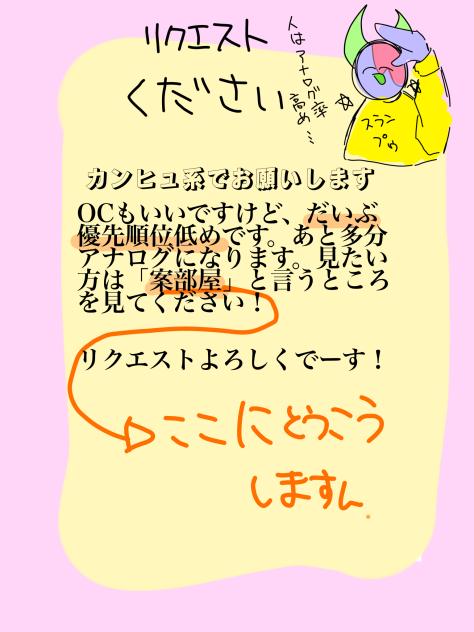 リクエスト
ください
人はアナログ率
高め…
スラン
プゥ
カンヒュ系でお願いします
OCもいいですけど、だいぶ
優先順位低めです。あと多分
アナログになります。見たい
方は「案部屋」と言うところ
を見てください！
リクエストよろしくでーす！
ここにとうこう
しますん